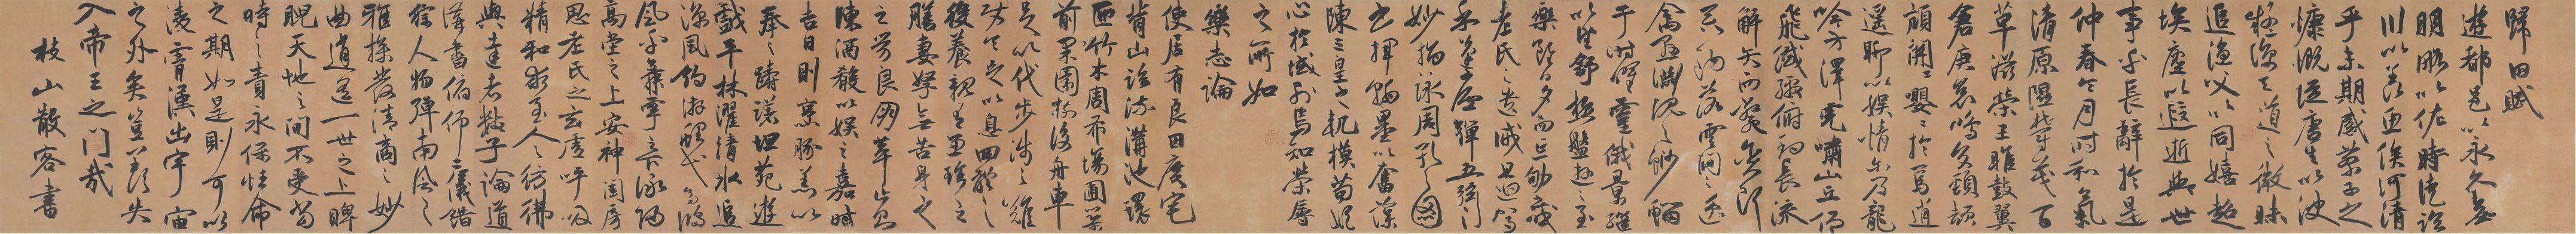 歸田賦
遊都邑以永久無
明略以佐時徒臨
川以羨魚俟河清
乎未期感蔡子之
慷慨從唐生以決
疑諒天道之微昧
追漁父以同嬉超
埃塵以遐逝與世
事乎長辭於是
仲春令月時和氣
清原隰鬱茂百
草滋榮王雎鼓翼
倉庚哀鳴交頸頡
頏關關嚶嚶於焉逍
遙聊以娛情爾乃龍
吟方澤虎嘯山丘仰
飛纖繳俯釣長流
觸矢而斃貪餌
吞鉤落雲間之逸
禽懸淵沉之鯊鰡
于時曜靈俄景繼
以望舒極盤遊之至
樂雖日夕而忘劬感
老氏之遺誡且迴駕
乎蓬廬彈五弦之
妙指詠周孔之圖
書揮翰墨以奮藻
陳三皇之軌模苟縱
心於域外焉知榮辱
之所如
樂志論
使居有良田廣宅
背山臨流溝池環
匝竹木周布場圃築
前果園樹後舟車
足以代步涉之難
使令足以息四體之
役養親有兼珍之
膳妻孥無苦身之
勞良朋萃止則
陳酒殽以娛之嘉時
吉日則烹豚羔以
奉之躊躇畦苑遊
戲平林濯清水追
涼風釣游鯉弋高鴻
風乎舞雩之下詠歸
高堂之上安神閨房
思老氏之玄虛呼吸
精和求至人之彷彿
與達者數子論道
講書俯仰二儀錯
綜人物彈南風之
雅操發清商之妙
曲逍遙一世之上睥
睨天地之間不受當
時之責永保性命
之期如是則可以
凌霄漢出宇宙
之外矣豈羨夫
入帝王之門哉
枝山散客書